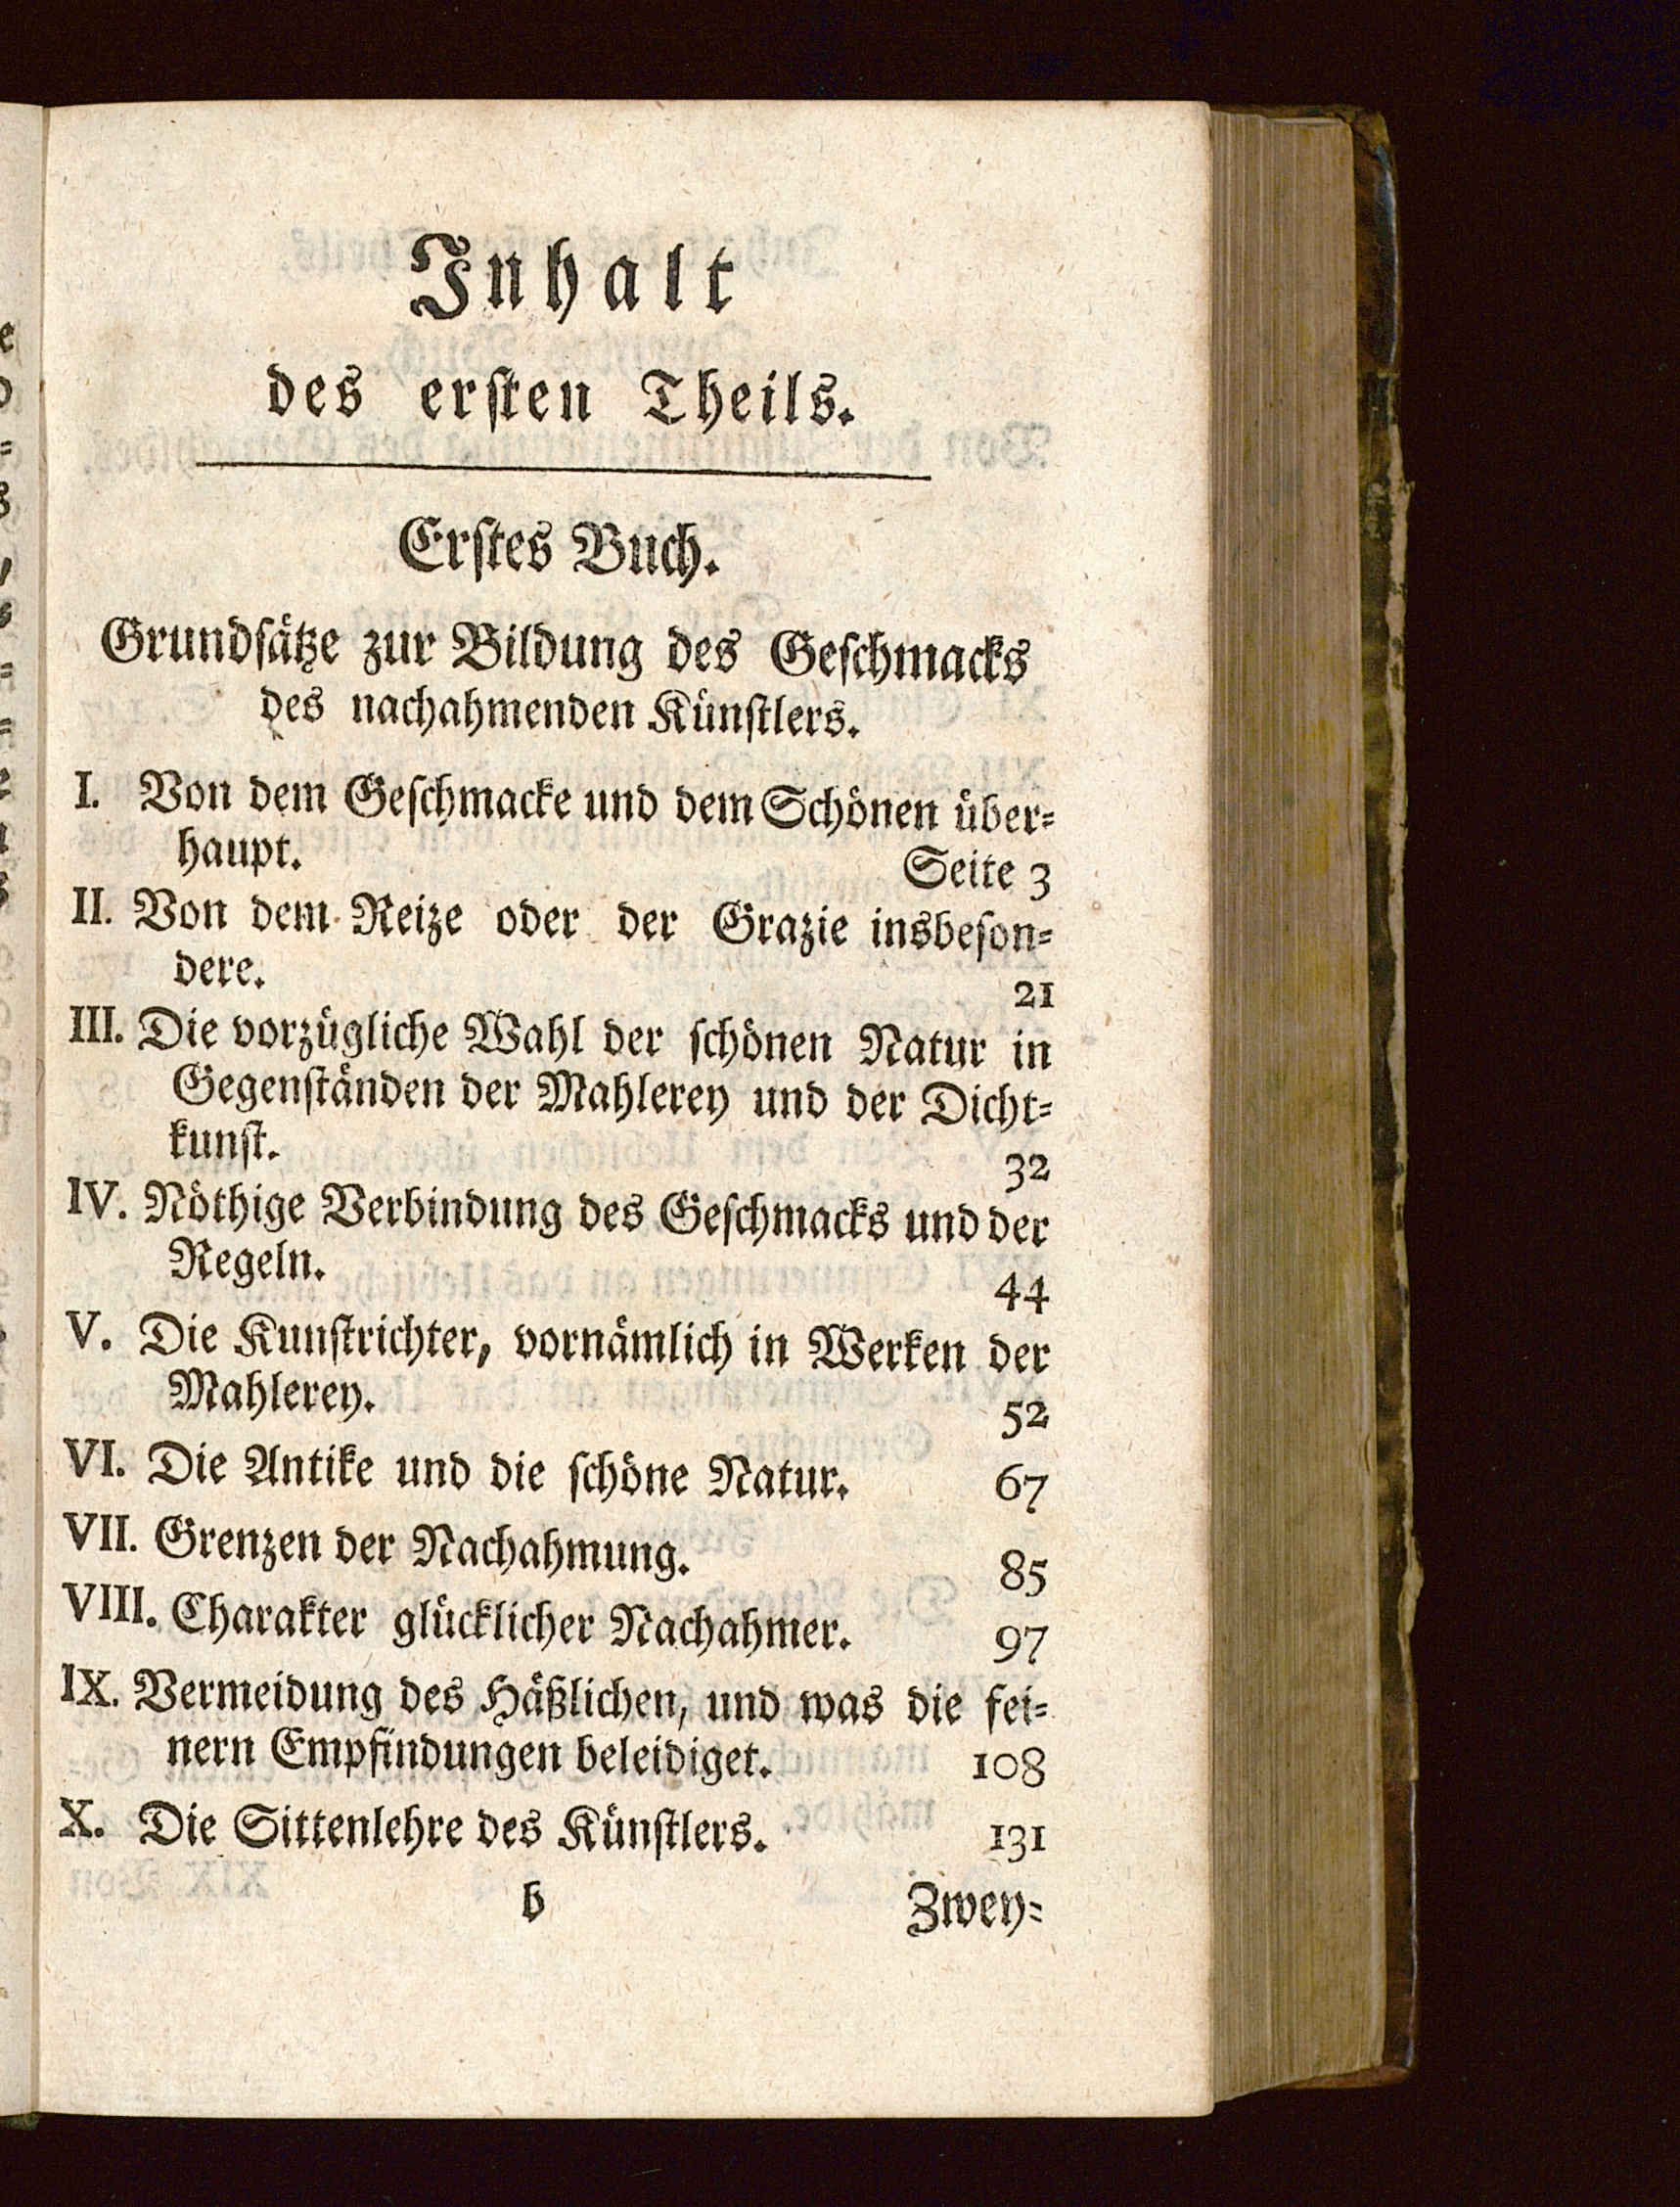 Inhalt
des ersten Theils.
Erstes Buch.
Grundsätze zur Bildung des Geschmacks
des nachahmenden Künstlers.
I. Von dem Geschmacke und dem Schönen über=
haupt. Seite 3
II. Von dem Reize oder der Grazie insbeson=
dere. 21
III. Die vorzügliche Wahl der schönen Natur in
Gegenständen der Mahlerey und der Dicht=
kunst. 32
IV. Nöthige Verbindung des Geschmacks und der
Regeln. 44
V. Die Kunstrichter, vornämlich in Werken der
Mahlerey. 52
VI. Die Antike und die schöne Natur. 67
VII. Grenzen der Nachahmung. 85
VIII. Charakter glücklicher Nachahmer. 97
IX. Vermeidung des Häßlichen, und was die fei=
nern Empfindungen beleidiget. 108
X. Die Sittenlehre des Künstlers. 131
b Zwey=